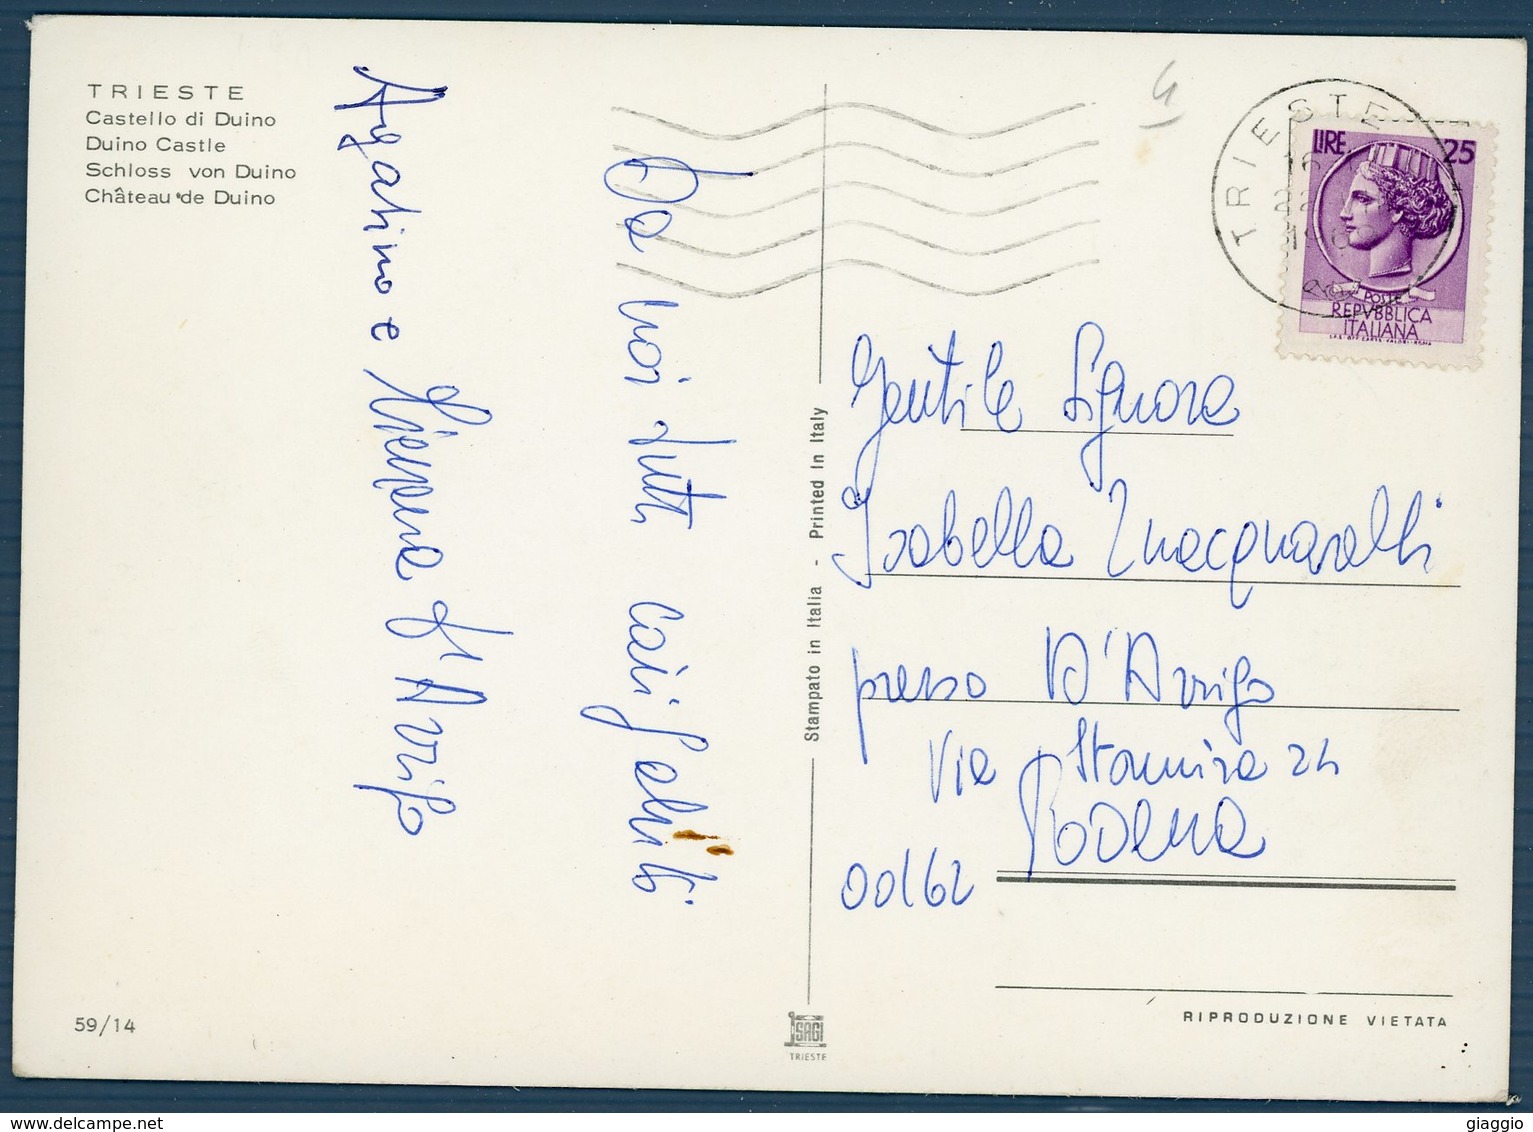 TRIESTE
Castello di Duino
Duino Castle
Schloss von Duino
Château de Duino
Da noi tutti cari saluti
Agatino e Vienna D'Arrigo
59/14
Stampato in Italia - Printed in Italy
SAGI
TRIESTE
4
TRIESTE
16
22
LIRE 25
POSTE
REPVBBLICA
ITALIANA
Gentile Signora
Isabella Inacquaralli
presso D'Arrigo
Via Stamira 24
Roma
00162
RIPRODUZIONE VIETATA
delcampe.net
giaggio